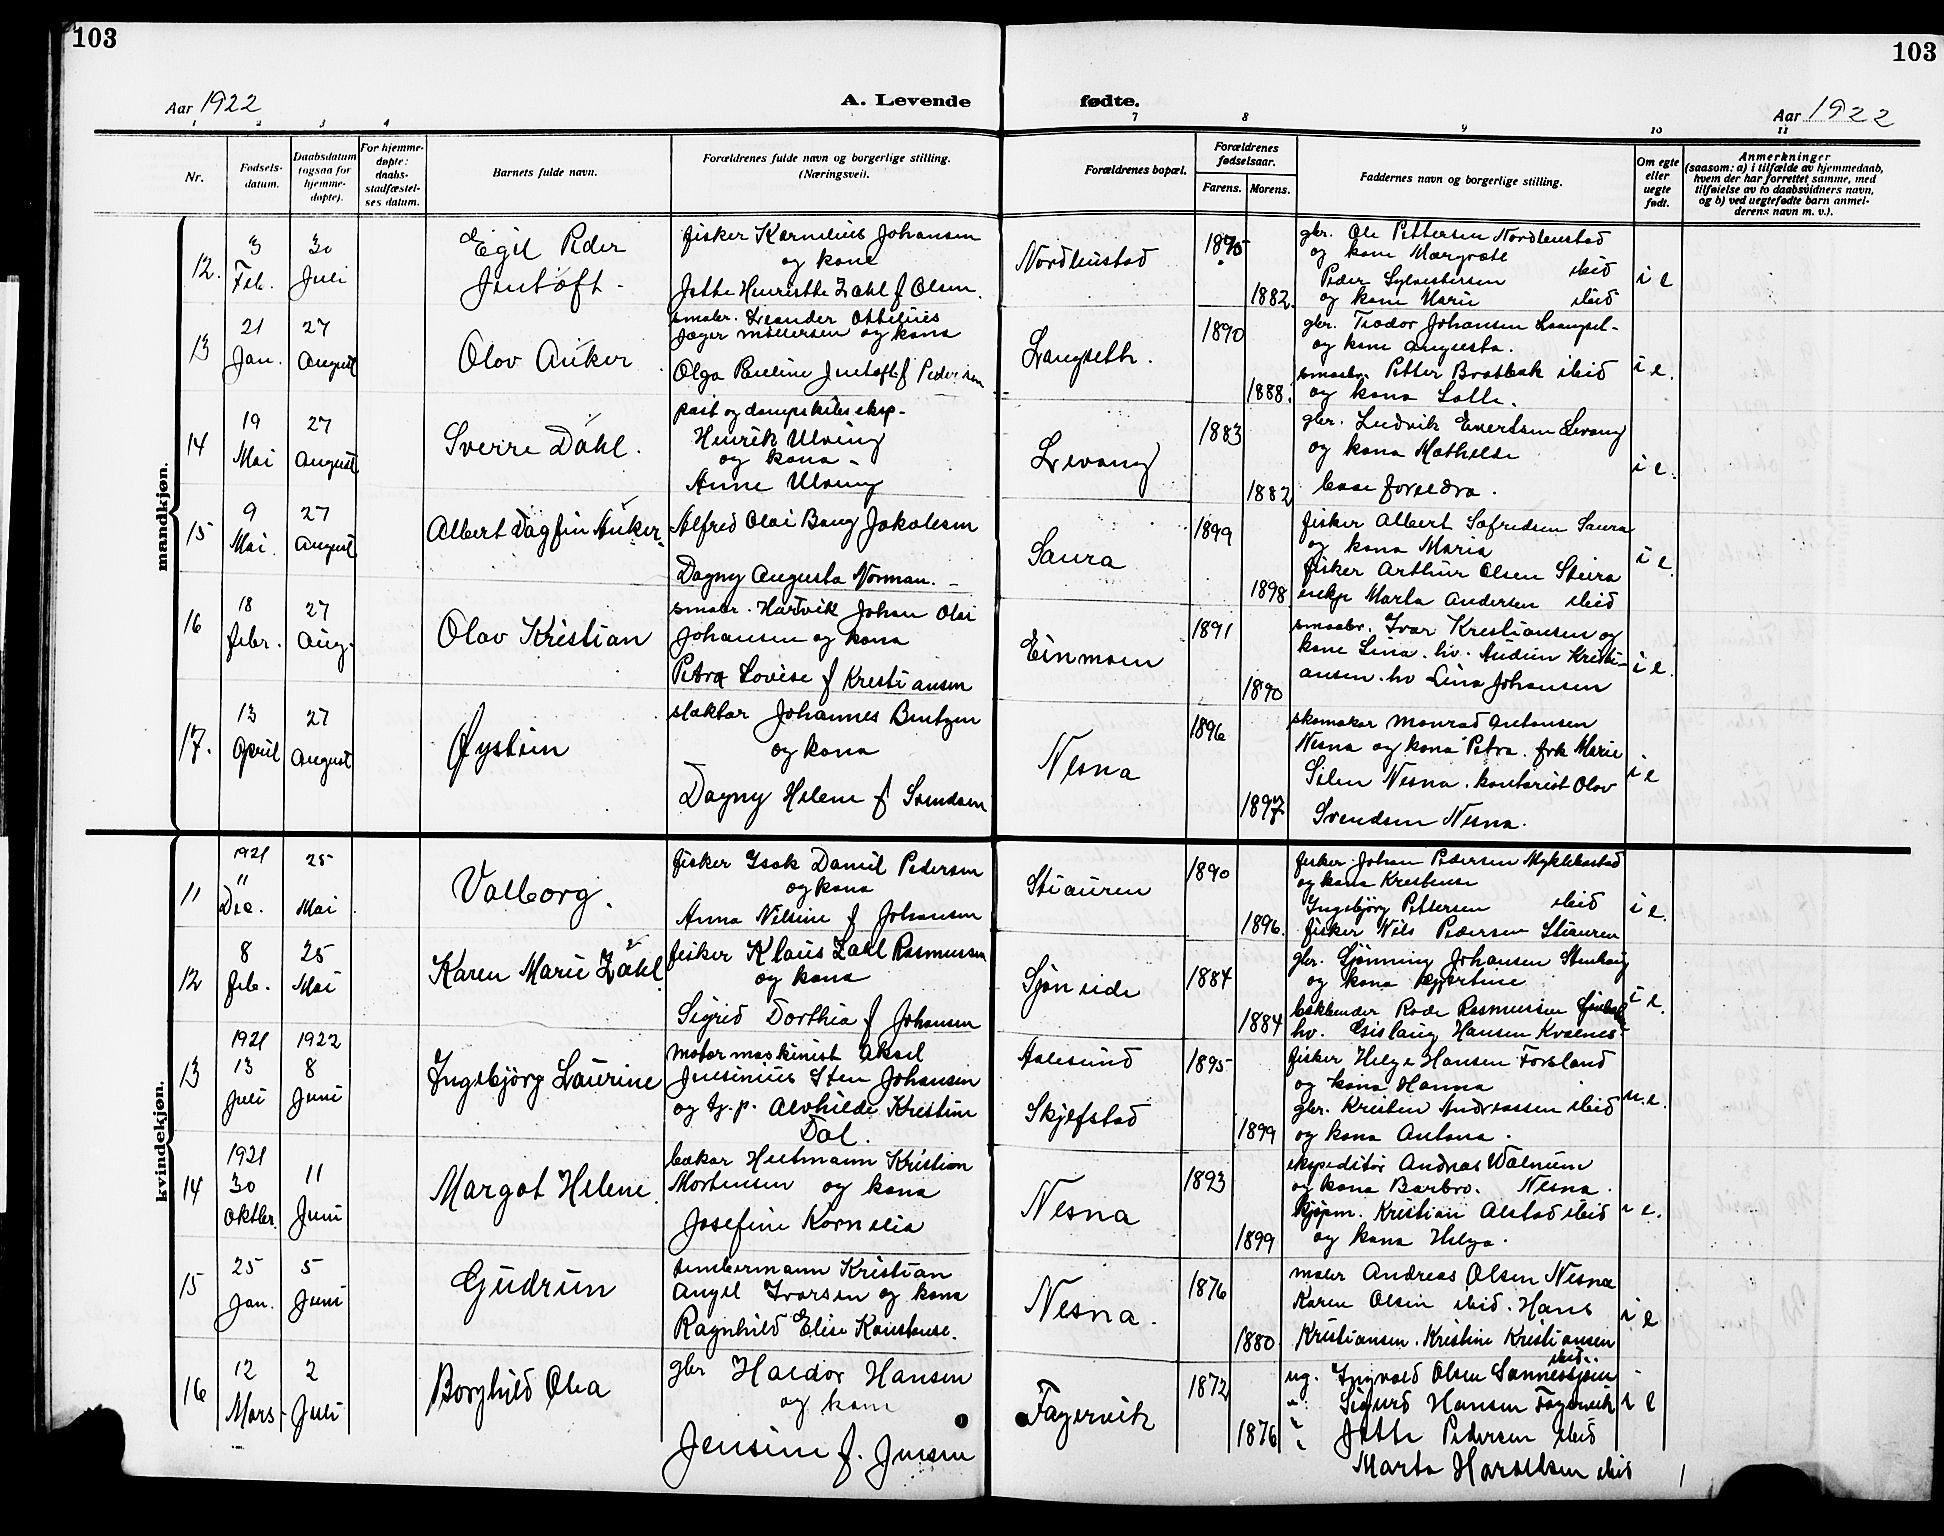 103
103
Aar 1922
A. Levende fødte.
Aar 1922
1 2 3 4 7 8 9 10 11
Nr.
Fødsels-
datum.
Daabsdatum
(ogsaa for
hjemme-
døpte).
For hjemme-
døpte:
daabs-
stadfæstel-
ses datum.
Barnets fulde navn.
Forældrenes fulde navn og borgerlige stilling.
(Næringsvei).
Forældrenes bopæl.
Forældrenes
fødselsaar.
Farens. Morens.
Faddernes navn og borgerlige stilling.
Om egte
eller
uegte
født.
Anmerkninger
(saasom: a) i tilfælde av hjemmedaab,
hvem der har forrettet samme, med
tilføielse av to daabsvidners navn,
og b) ved uegtefødte barn anmel-
derens navn m. v.).
mandkjøn.
12.
3
Feb.
30
Juli
Egil Peder
Jentoft
fisker Kornelius Johansen
og kone
Jette Henriette Zahl f Olsen.
Nordhustad
1895
1882.
gbr. Ole Pettersen Nordhustad
og kone Margrete
Peder Sylvestersen ibid
og kone Marie ibid
i e
13
21
Jan.
27
August
Olov Anker
smabr. Leander Ottelius
Jæger Mollersen og kona
Olga Pauline Jentoft f Pedersen
Langseth.
1890
1888.
gbr. Teodor Johansen
og kone Augusta.
smaabr. Petter Bratbak ibid
og kona
i e.
14
19
Mai
27
August
Sverre Dahl.
post og dampskibs eksp.
Henrik Ulving
og kona
Anne Ulving
Levang
1883
1882
gbr. Ludvik Evertsen Levang
og kona Mathilde
base foreldra.
i e.
15
9
Mai.
27
August
Albert Dagfin Anker
Alfred Olai Bang Jakobsen
Dagny Augusta Norman.
Saura
1899
1898
fisker Albert Sofredsen Saura
og kona Maria
fisker Arthur Olsen
Marta Andersen ibid
i e.
16
18
febr.
27
Aug.
Olav Kristian
smabr. Hartvik Johan Olai
Johansen og kona
Petra Lovise f Kristiansen
Einmoen
1891
1890
smaabr. Ivar Kristiansen og
kone Lina. hv. Audun Kristi-
ansen. hv Lina Johansen
i e.
17.
13
April
27
August
Øystein
slaktar Johannes Bentzen
og kona
Dagny Helene f Svendsen
Nesna
1896
1897
skomakar Monrad Antonsen
Nesna og kona Petra. frk Marie
Nesna. kontorist Olov
Svendsen Nesna.
i e
kvindekjøn.
11
1921
11
Dec.
25
Mai
Valborg.
fisker Isak Daniel Pedersen
og kona
Anna Nilsine f Johansen
Stiauren
1890
1896.
fisker Johan Pedersen Myklebostad
og kona Krestense
Ingebjørg Pettersen ibid
fisker Nils Pedersen Stiauren
i e.
12
8
feb.
25
Mai
Karen Marie Zahl
fisker Klaus Zahl Rasmussen
og kona
Sigrid Dorthia f Johansen
Sjøneide
1884
1884
gbr. Johansen Stenhaug
og kona
Rode Rasmussen
hv. Gislaug Hansen Kvænes
i e.
13
1921
13
Juli
1922
8
Juni
Ingebjörg Laurine
motormaskinist Aksel
Juesinius Sten Johansen
og tj. p. Alvhilde Kristine
Dal.
Aalesund
Skjefstad
1895
1899
fisker Helge Hansen Forsland
og kona Hanna
gbr. Kristen Andreassen ibid
og kona Antona.
u. e.
14
1921
30
Oktbr.
11
Juni
Margot Helene.
bakar Hertmann Kristian
Mortensen og kona
Josefine Kornelia
Nesna
1893
1899
ekspeditør Andreas Walnum
og kona Barbro. Nesna.
kjøpm. Kristian Alstad ibid
og kona Helga.
i e.
15
25
Jan.
5
Juni
Gudrun
tømbermann Kristian
Angel Ivarsen og kona
Ragnhild Elise Konstanse.
Nesna.
1876
1880
maler Andreas Olsen Nesna
Karen Olsen ibid. Hans
Kristiansen. Kristine Kristiansen
ibid.
i e
16
12
Mars
2
Juli
Borghild Olea
gbr Haldor Hansen
og kone
Jensine f. Jensen
Fagervik
1872
1876
ug. Ingvald Olsen
" Sigurd Hansen Fagervik
" Jette Pedersen ibid
Marta Haraldsen ibid
i e